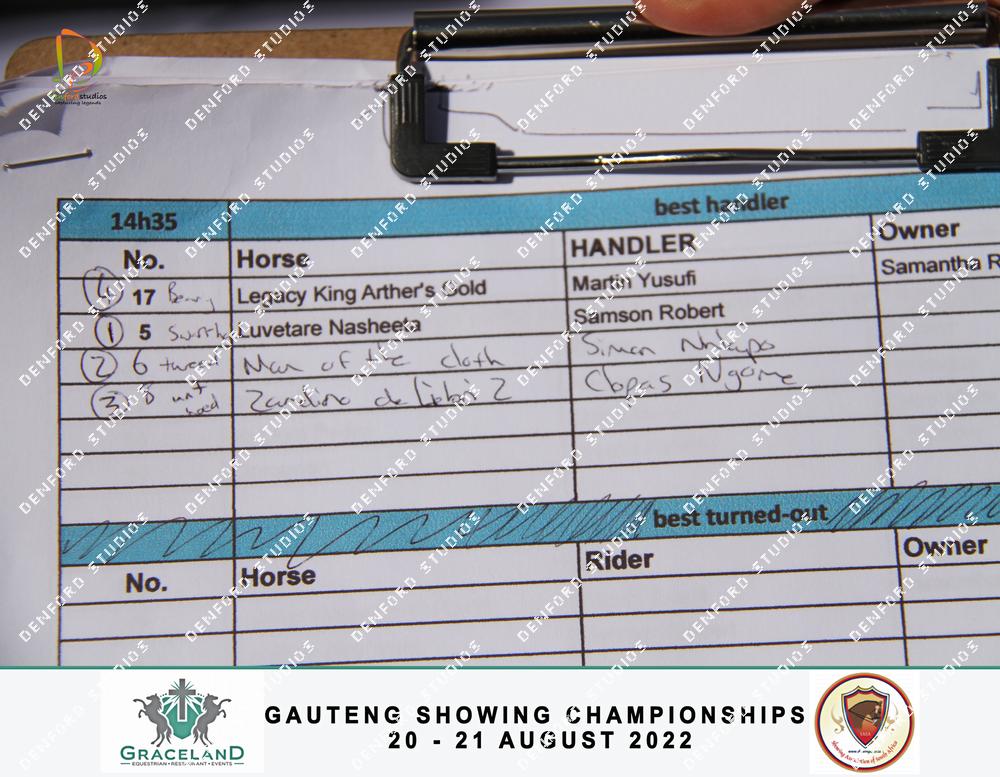 studios
capturing legends
14h35 best handler
No. Horse HANDLER Owner
17 Legacy King Arther's Gold Martin Yusufi Samantha R
1 5 Luvetare Nasheeta Samson Robert
2 6 tweed Man of the cloth Simon
3 8 Clopas Ngome
best turned-out
No. Horse Rider Owner
GRACELAND
EQUESTRIAN • RESTAURANT • EVENTS
GAUTENG SHOWING CHAMPIONSHIPS
20 - 21 AUGUST 2022
DENFORD STUDIOS